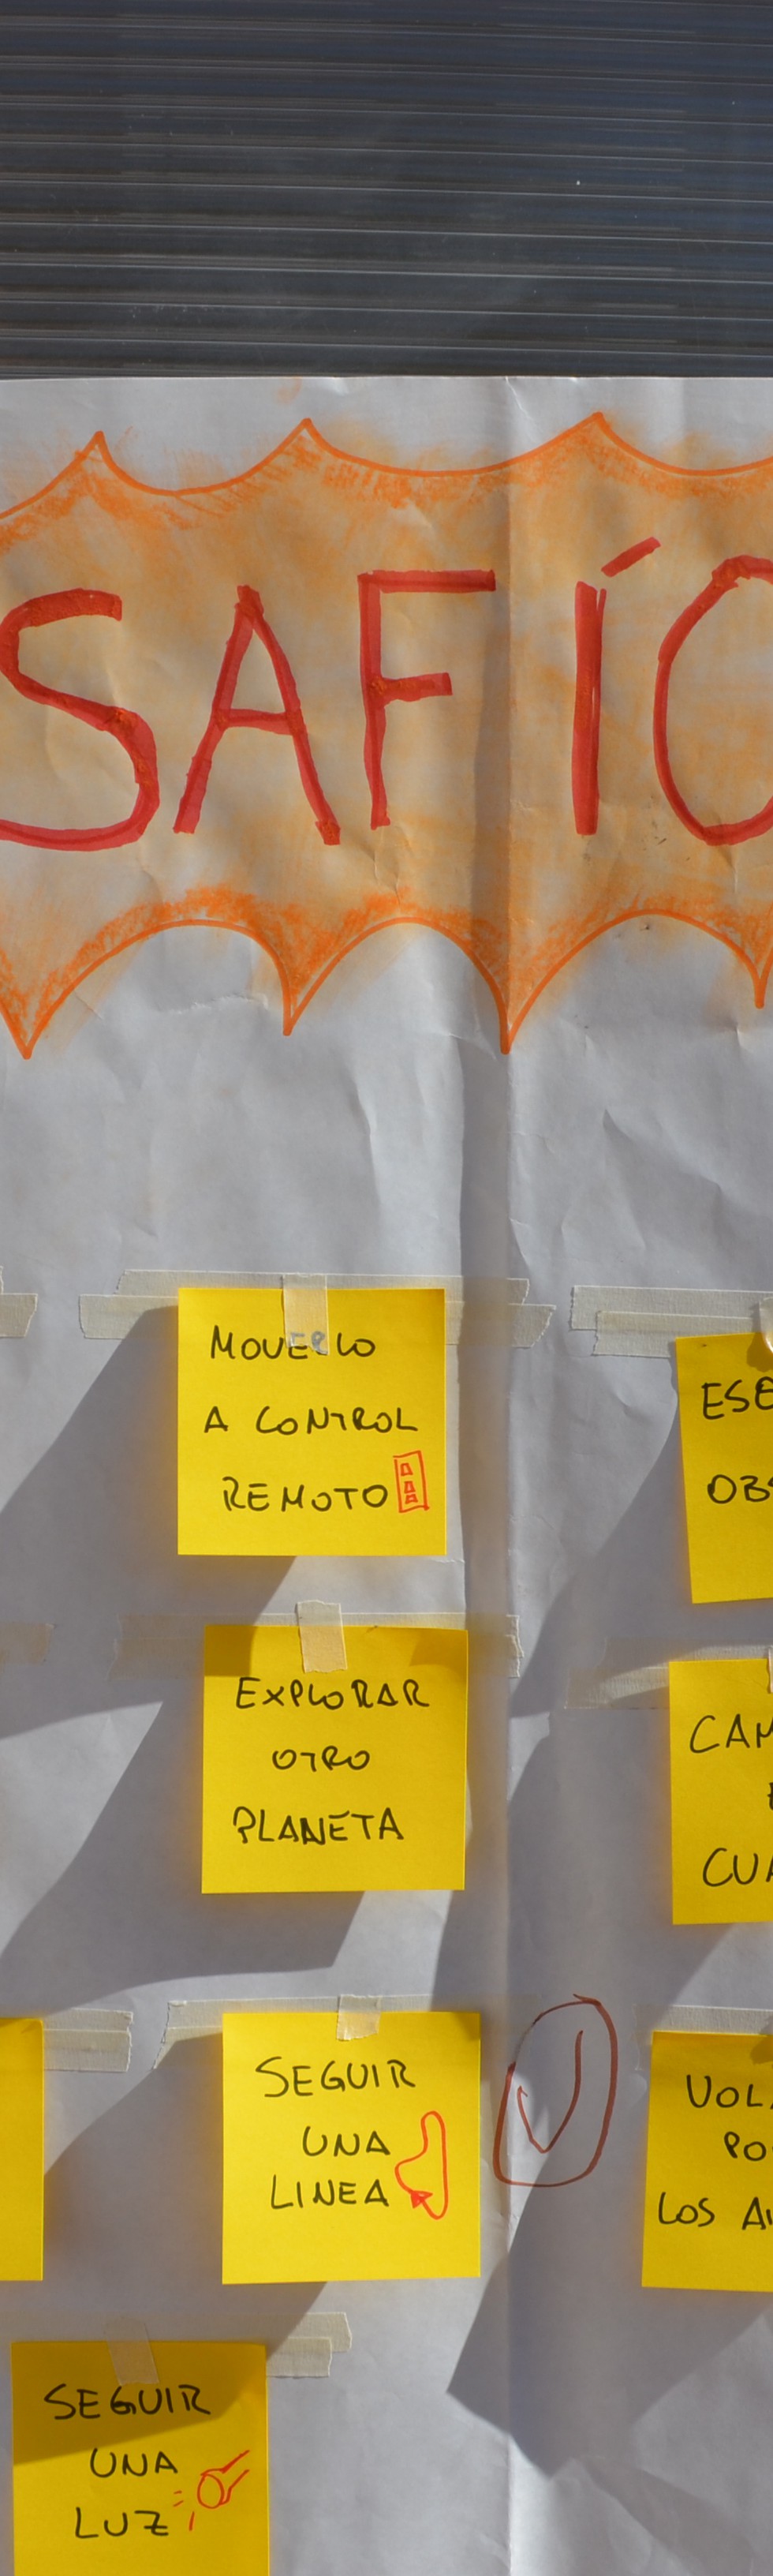 SAFÍO
MOVERLO
A CONTROL
REMOTO
EXPLORAR
OTRO
PLANETA
SEGUIR
UNA
LINEA
LOS
SEGUIR
UNA
LUZ